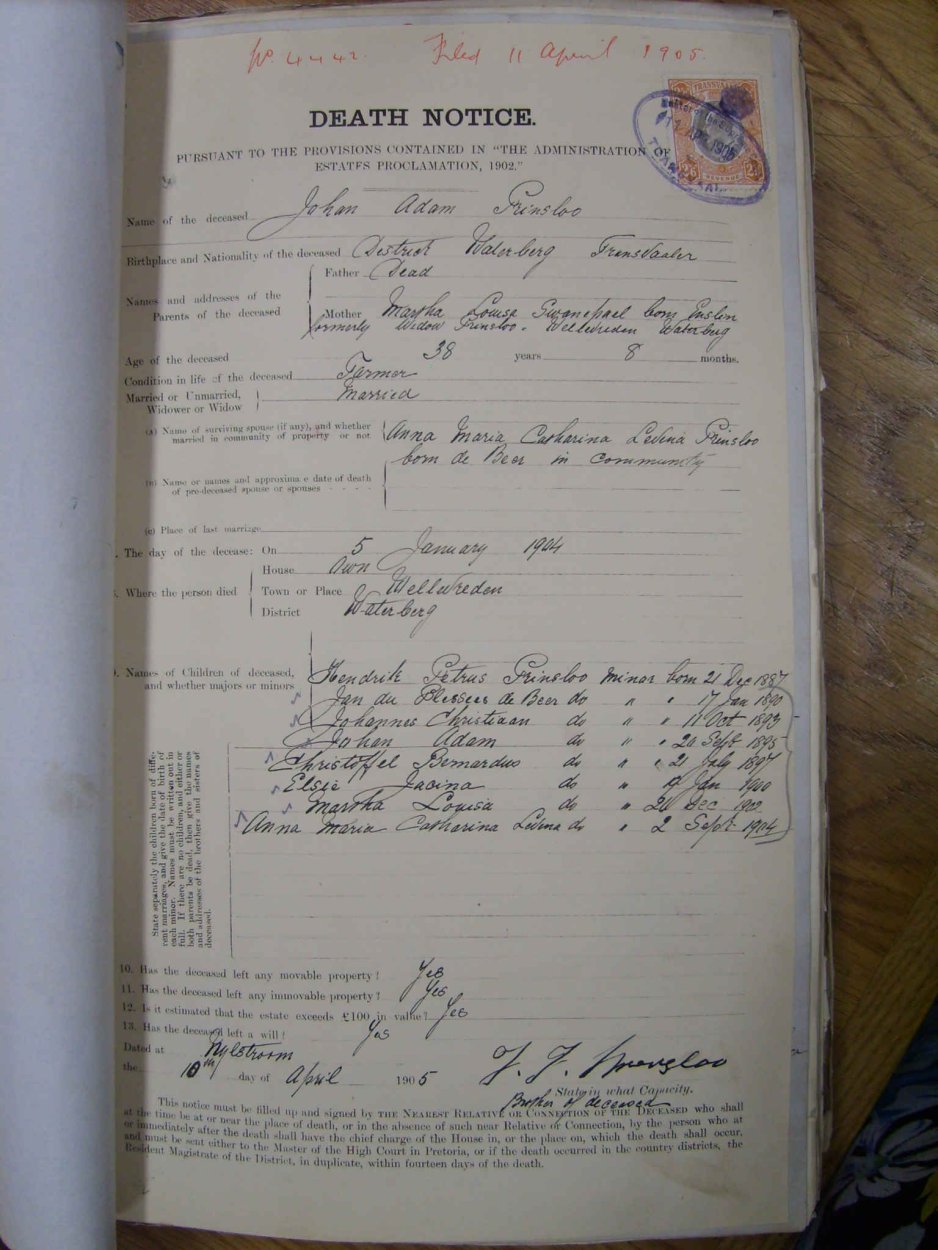 No. 4442. Filed 11 April 1905.
DEATH NOTICE.
PURSUANT TO THE PROVISIONS CONTAINED IN "THE ADMINISTRATION OF
ESTATES PROCLAMATION, 1902."
Name of the deceased Johan Adam Prinsloo
Birthplace and Nationality of the deceased District Waterberg Transvaaler
Names and addresses of the Parents of the deceased
Father Dead
Mother Martha Louisa Swanepael born Enslin
formerly Widow Prinsloo. Wellvreden Waterberg
Age of the deceased 38 years 8 months.
Condition in life of the deceased Farmer
Married or Unmarried, Widower or Widow Married
(a) Name of surviving spouse (if any), and whether married in community of property or not
Anna Maria Catharina Levina Prinsloo
born de Beer in community
(b) Name or names and approximate date of death
of pre-deceased spouse or spouses
(c) Place of last marriage
The day of the decease: On 5 January 1904
House Own
Where the person died Town or Place Wellvreden
District Waterberg
Names of Children of deceased,
and whether majors or minors
Hendrik Petrus Prinsloo minor born 21 Dec 1887
Jan du Plessees de Beer do " " 17 Jan 1890
Johannes Christiaan do " " 11 Oct 1893
Johan Adam do " " 20 Sept 1895
Christoffel Bernardus do " " 21 July 1897
Elsie Jacina do " " Jan 1900
Martha Louisa do " Dec
Anna Maria Catharina Levina do " 2 Sept 1904
State separately the children born of different marriages, and give the date of birth of
each minor. Names must be written out in
full. If there are no children, and either or
both parents be dead, then give the names
and addresses of the brothers and sisters of
deceased.
10. Has the deceased left any movable property? Yes
11. Has the deceased left any immovable property? Yes
12. Is it estimated that the estate exceeds £100 in value? Yes
13. Has the deceased left a will? Yes
Dated at Nylstroom
the 10th day of April 1905
State in what Capacity.
Brother of deceased
This notice must be filled up and signed by THE NEAREST RELATIVE OR CONNECTION OF THE DECEASED who shall
at the time be at or near the place of death, or in the absence of such near Relative or Connection, by the person who at
or immediately after the death shall have the chief charge of the House in, or the place on, which the death shall occur,
and must be sent either to the Master of the High Court in Pretoria, or if the death occurred in the country districts, the
Resident Magistrate of the District, in duplicate, within fourteen days of the death.